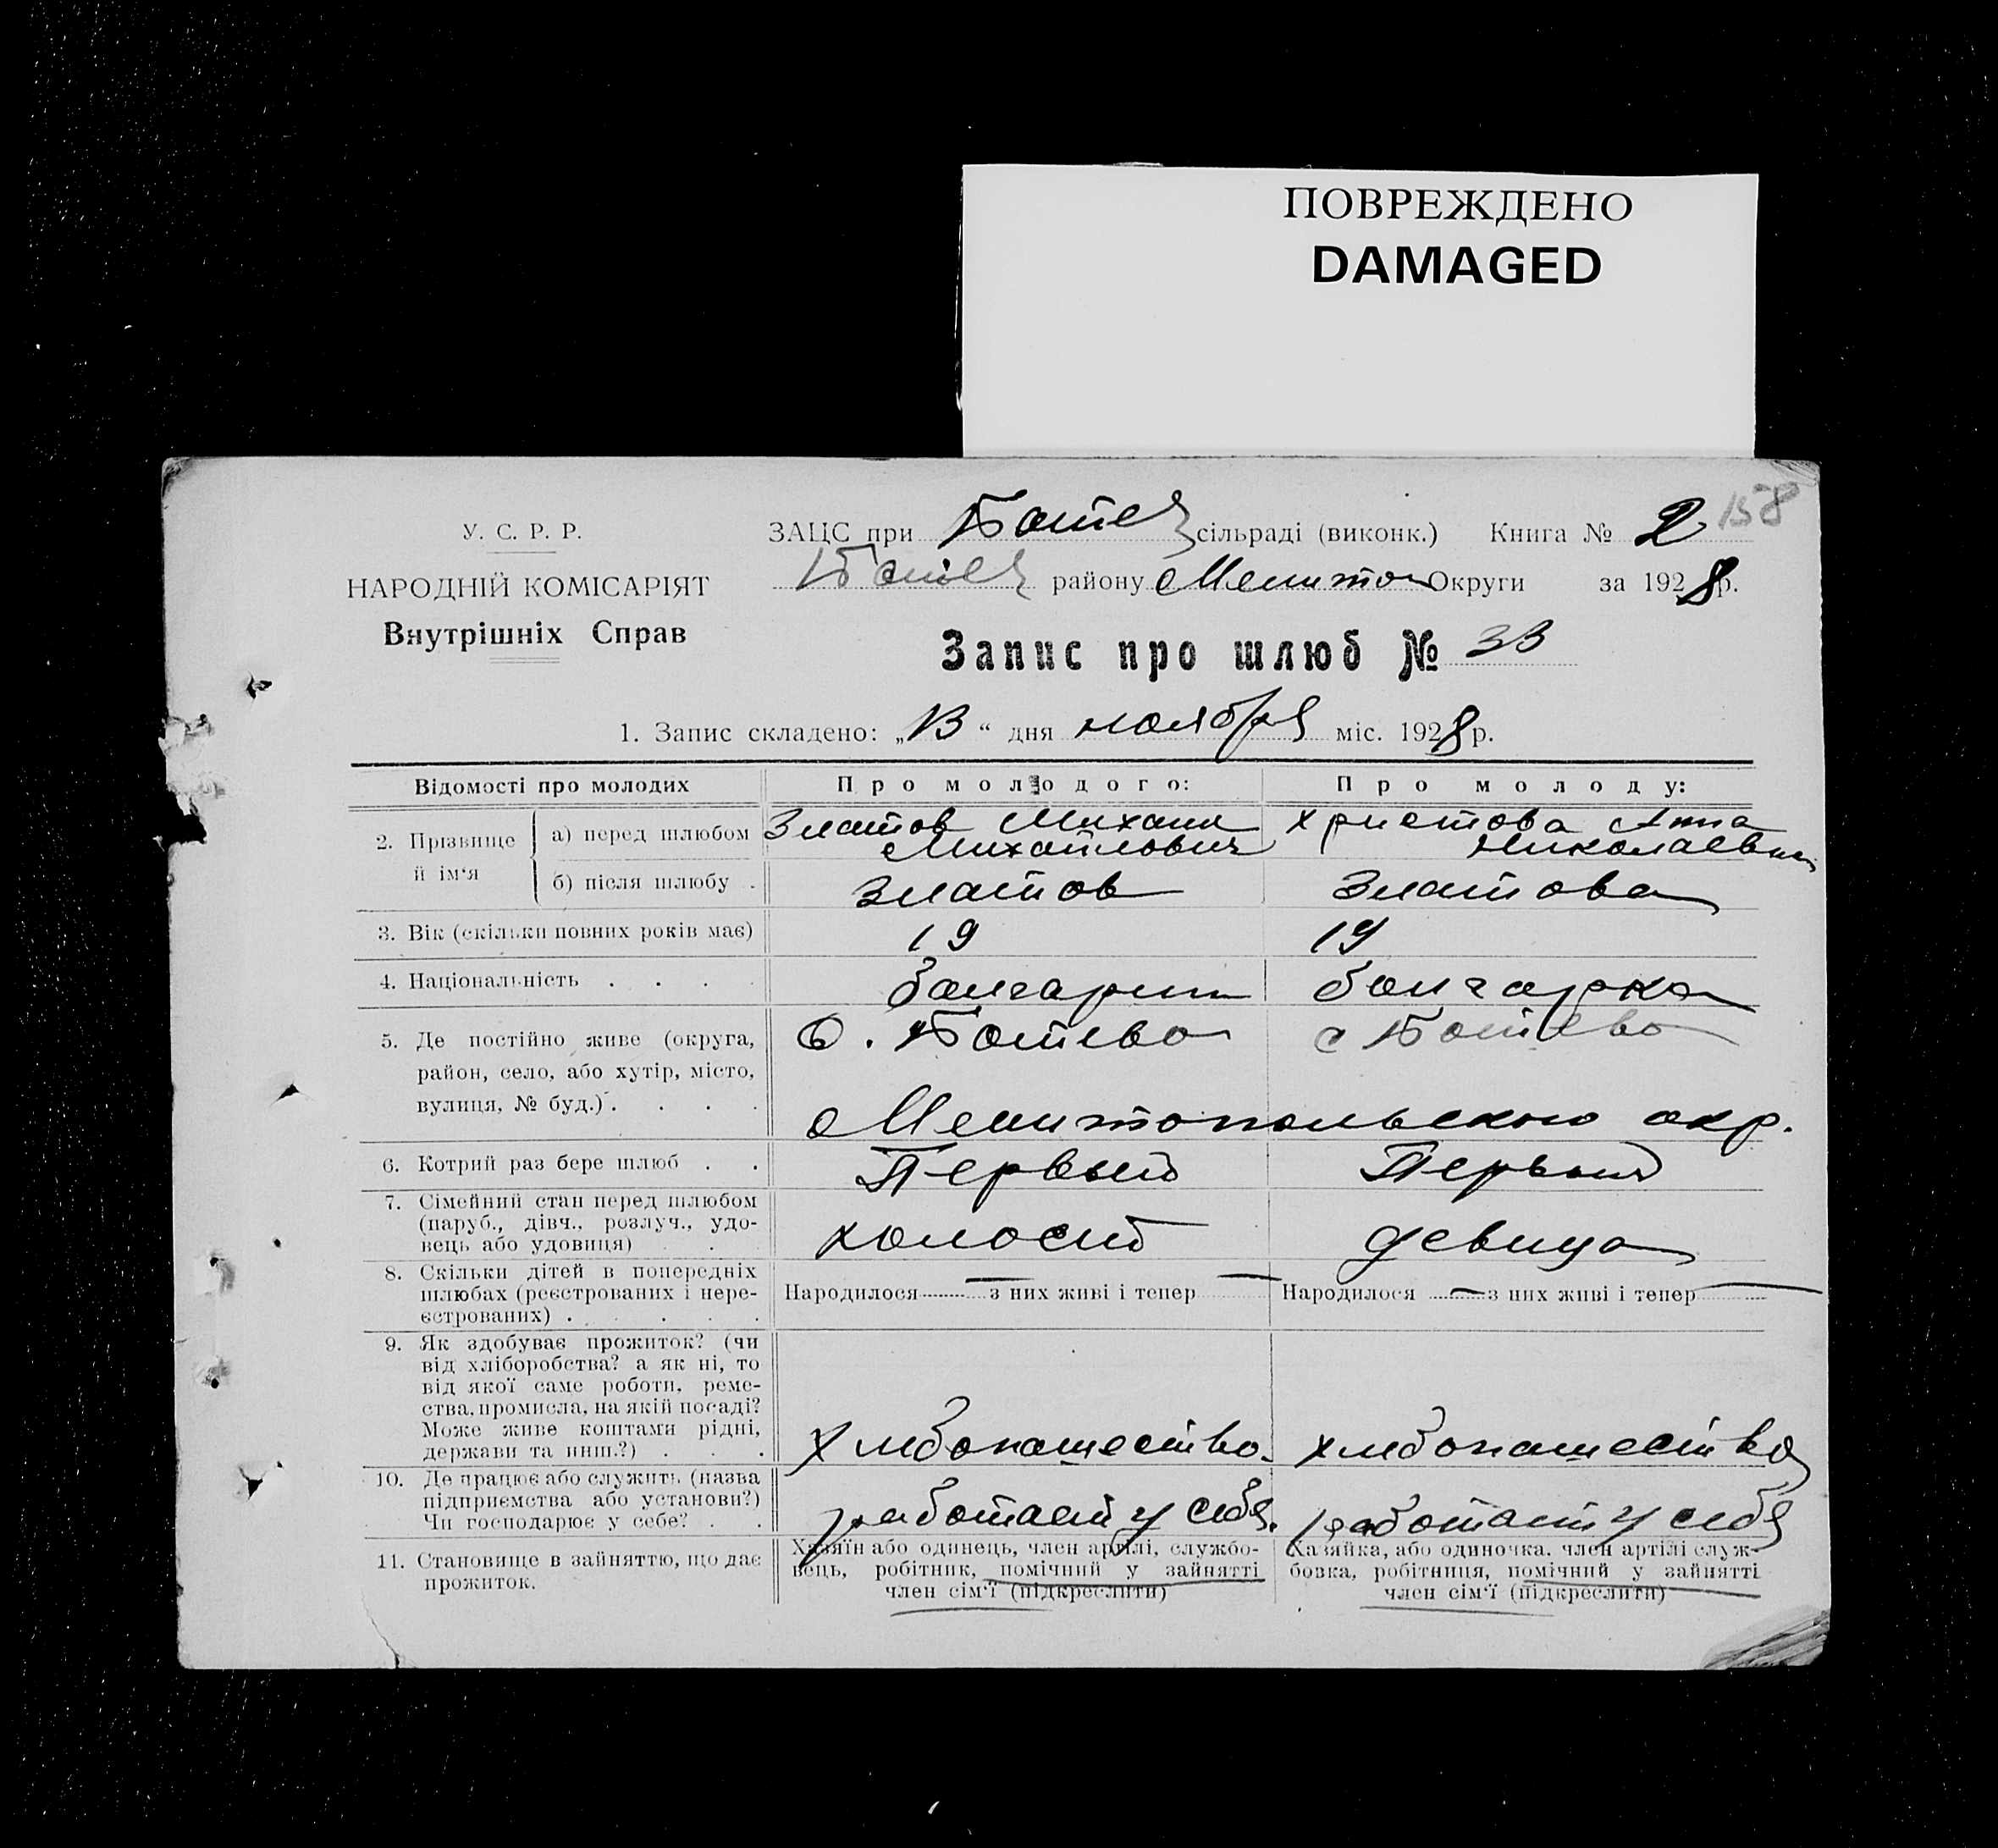 ПОВРЕЖДЕНО
DAMAGED
158
У. С. Р. Р.
НАРОДНІЙ КОМІСАРІЯТ
Внутрішніх Справ
ЗАЦС при Ботев сільраді (виконк.) Книга № 2
Ботієв району Мелитоп Округи за 1928 р.
Запис про шлюб № 33
1. Запис складено: „13“ дня ноября міс. 1928 р.
Відомості про молодих Про молодого: Про молоду:
2. Прізвище й ім'я
а) перед шлюбом Златов Михаил Михайлович Христова Анна Николаевна
б) після шлюбу . Златов Златова
3. Вік (скільки повних років має) 19 19
4. Національність . . . . болгарин болгарка
5. Де постійно живе (округа, с. Ботево с Ботево
район, село, або хутір, місто,
вулиця, № буд.) . . . . Мелитопольского окр.
6. Котрий раз бере шлюб . . Первый Первый
7. Сімейний стан перед шлюбом
(паруб., дівч., розлуч., удо-
вець або удовиця) . . холостой девица
8. Скільки дітей в попередніх
шлюбах (реєстрованих і нере-
єстрованих) . . . . .
Народилося — з них живі і тепер — Народилося — з них живі і тепер —
9. Як здобуває прожиток? (чи
від хліборобства? а як ні, то
від якої саме роботи, реме-
ства, промисла, на якій посаді?
Може живе коштами рідні,
держави та инш.?) . . . хлебопашество. хлебопашество
10. Де працює або служить (назва
підприємства або установи?)
Чи господарює у себе? . . работает у себя. работает у себя
11. Становище в зайняттю, що дає
прожиток.
Хазяїн або одинець, член артілі, службо-
вець, робітник, помічний у зайнятті
член сім'ї (підкреслити)
Хазяйка, або одиночка, член артілі служ-
бовка, робітниця, помічний у зайнятті
член сім'ї (підкреслити)